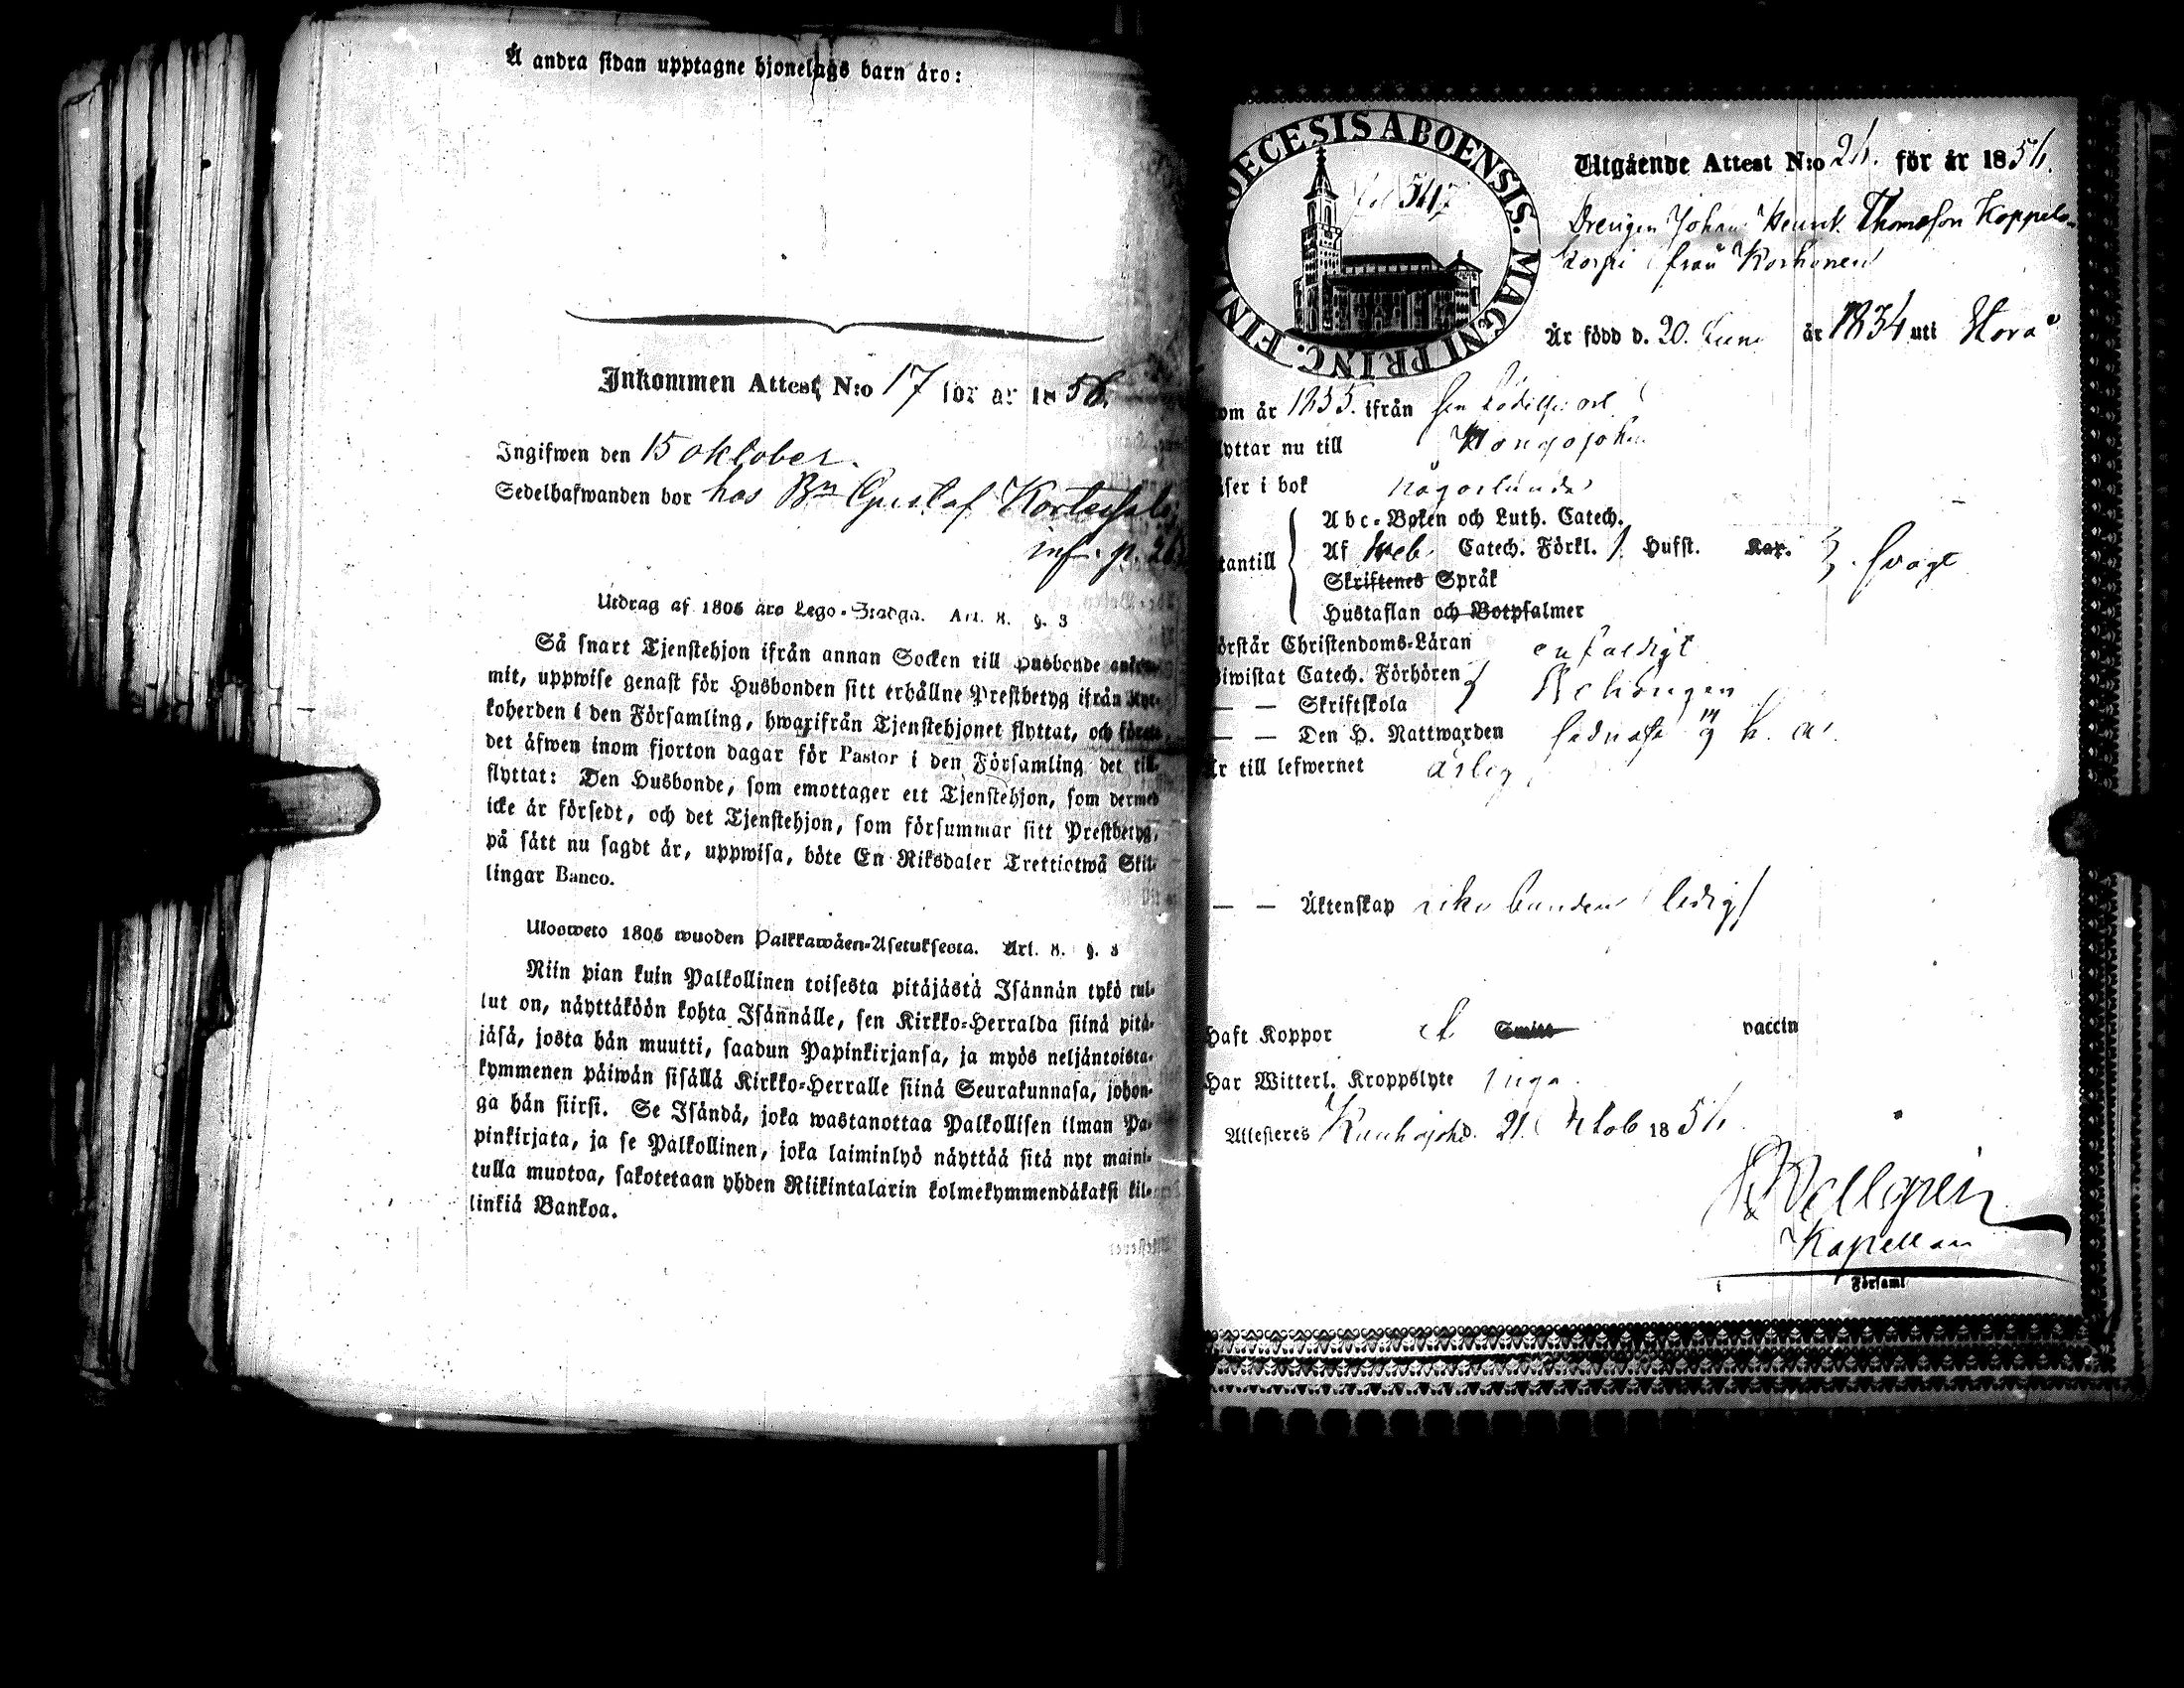 Å andra sidan upptagne hjonelags barn äro:
Inkommen Attest N:o 17 för år 1856.
Ingifwen den 15 oktober.
Sedelhafwanden bor hos Bn Gustaf
inf. p.
Utdrag af 1805 års Lego-Stadga. Art. 8. §. 3
Så snart Tjenstehjon ifrån annan Socken till Husbonde ankom-
mit, uppwise genast för Husbonden sitt erhållne Prestbetyg ifrån Kyr-
koherden i den Församling, hwarifrån Tjenstehjonet flyttat, och förete
det äfwen inom fjorton dagar för Pastor i den Församling det till-
flyttat: Den Husbonde, som emottager ett Tjenstehjon, som dermed
icke är försedt, och det Tjenstehjon, som försummar sitt Prestbetyg,
på sätt nu sagdt är, uppwisa, böte En Riksdaler Trettiotwå Skil-
lingar Banco.
Ulosweto 1805 wuoden Palkkawäen-Asetuksesta. Art. 8. §. 3
Niin pian kuin Palkollinen toisesta pitäjästä Isännän tykö tul-
lut on, näyttäköön kohta Isännälle, sen Kirkko-Herralda siinä pitä-
jäsä, josta hän muutti, saadun Papinkirjansa, ja myös neljäntoista-
kymmenen päiwän sisällä Kirkko-Herralle siinä Seurakunnasa, johon-
ga hän siirsi. Se Isändä, joka wastanottaa Palkollisen ilman Pa-
pinkirjata, ja se Palkollinen, joka laiminlyö näyttää sitä nyt maini-
tulla muotoa, sakotetaan yhden Riikintalarin kolmekymmendäkaksi kil-
linkiä Bankoa.
DIOECESIS ABOENSIS. MAGNI PRINC. FIN
547
Utgående Attest N:o för år 1856.
Drengen Johan Henrik Thomasson Koppelo-
korpi från Korhonen
Är född d. 20. Juni år 1834 uti Storå
om år 1855. ifrån födelse ort
lyttar nu till
äser i bok någorlunda
tantill
Abc-Boken och Luth. Catech.
Af Catech. Förkl. 1 Hufst. Kap. svagt
Skriftenes Språk
Hustaflan och Botpsalmer
örstår Christendoms-Läran enfaldigt
Biwistat Catech. Förhören
— — Skriftskola
— — Den H. Nattwarden sednast 14/9 h. a.
Är till lefwernet ärlig
— — Äktenskap icke bunden ledig
Haft Koppor Smitt vaccin
Har Witterl. Kroppslyte inga
Attesteres 21. Oktob 1856
Kapellan
i Församl